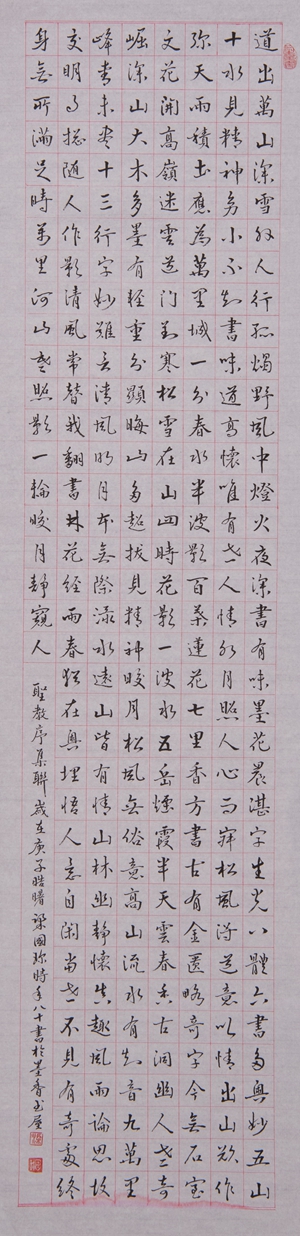 道出萬山深雪外人行孤燭野風中燈火夜深書有味墨花晨湛字生光八體六書多奥妙五山
十水見精神多小不知書味道高懷唯有老人情如月照人心而寐松風得道意以情出山欲作
弥天雨積土應為萬里城一分春水半波影百朶蓮花七里香方書古有金匱略奇字今無石室
文花開高嶺迷雲道門對寒松雪在山四時花影一波水五岳煙霞半天雲春來古洞幽人老奇
崛深山大木多墨有輕重分顯晦山多超拔見精神皎月松風無俗意高山流水有知音九萬里
峰青未老十三行字妙難言清風明月本無際源水遠山皆有情山林幽靜懷真趣風雨論思故
交明月随人作影清風常替我翻書林花經雨春猶在奥理悟人意自閑尚老不見有奇處终
身無所滿足時萬里河山光照影一輪皎月靜窺人
聖教序集聯歲在庚子皓曙梁國弥時年八十書於墨香書屋